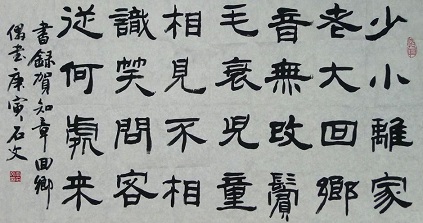 少小離家
老大回鄉
音無改鬢
毛衰兒童
相見不相
識笑問客
従何處来
書録賀知章回鄉
偶書庚寅石文